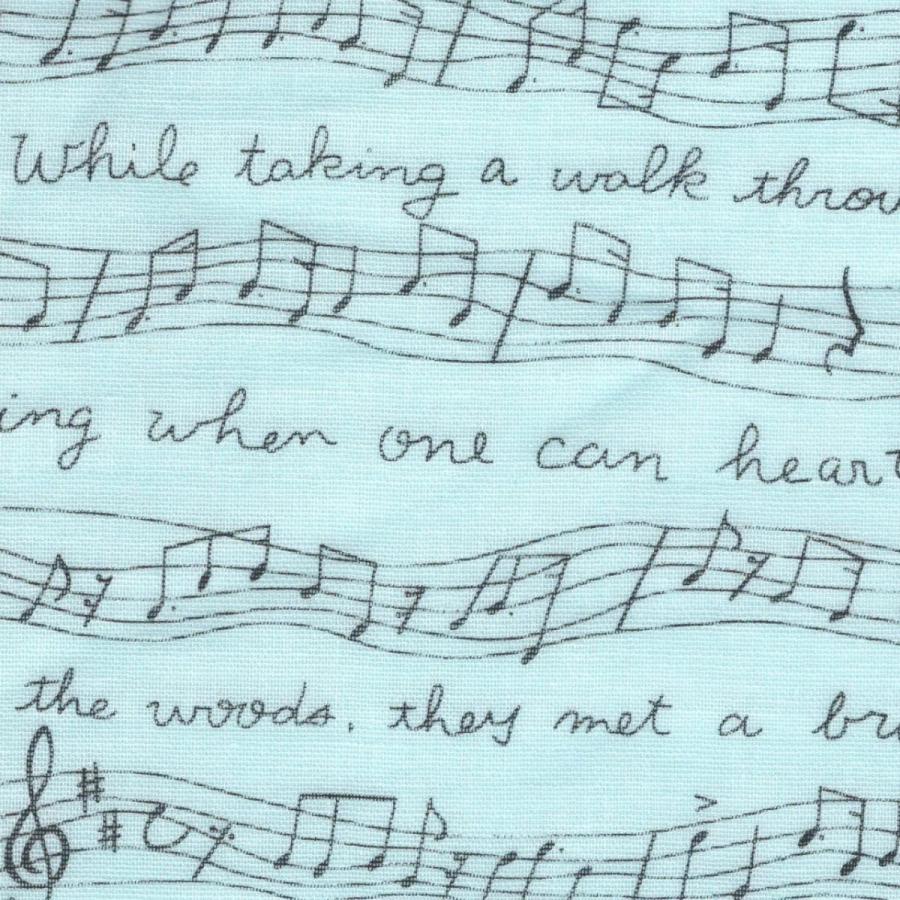 While taking a walk throu
ing when one can heart
the woods. they met a br